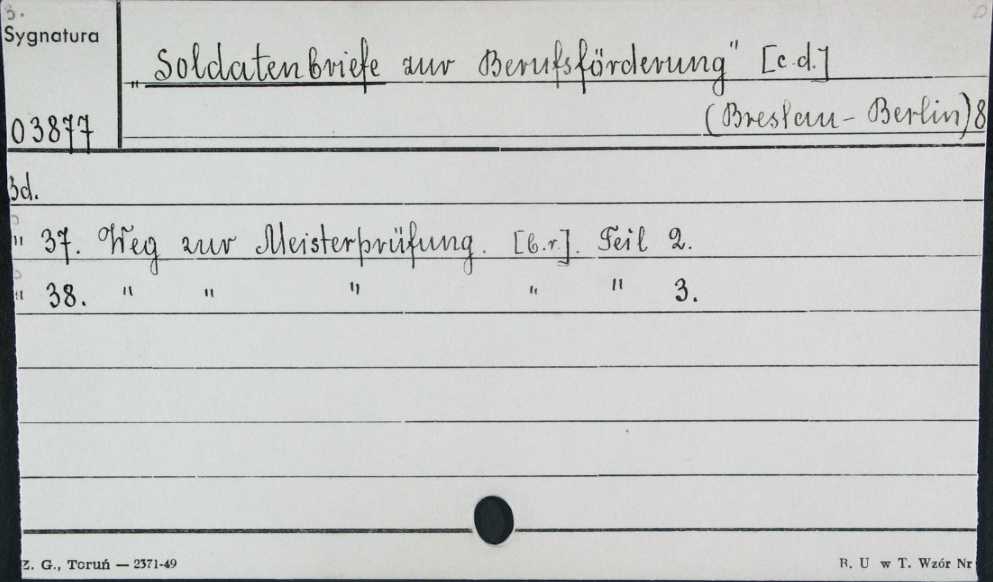 3.
Sygnatura
„Soldatenbriefe zur Berufsförderung" [c.d.]
03877
(Breslau - Berlin) 8
Bd.
" 37. Weg zur Meisterprüfung. [b.r.]. Teil 2.
" 38. " " " " " 3.
Z. G., Toruń — 2371-49
B. U w T. Wzór Nr